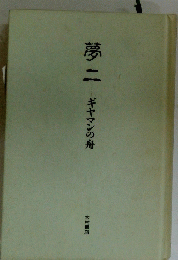 夢二
ギヤマンの舟